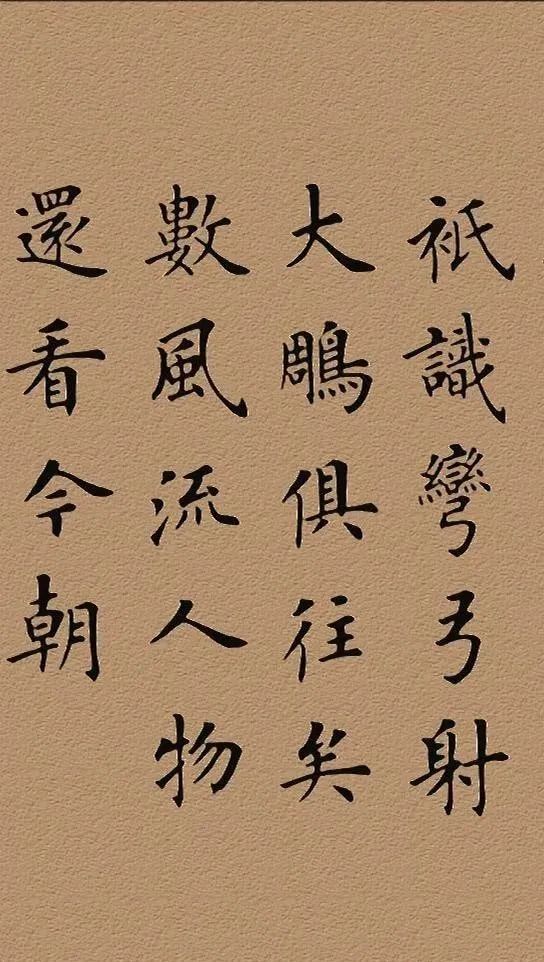 祇識彎弓射
大鵰俱往矣
數風流人物
還看今朝